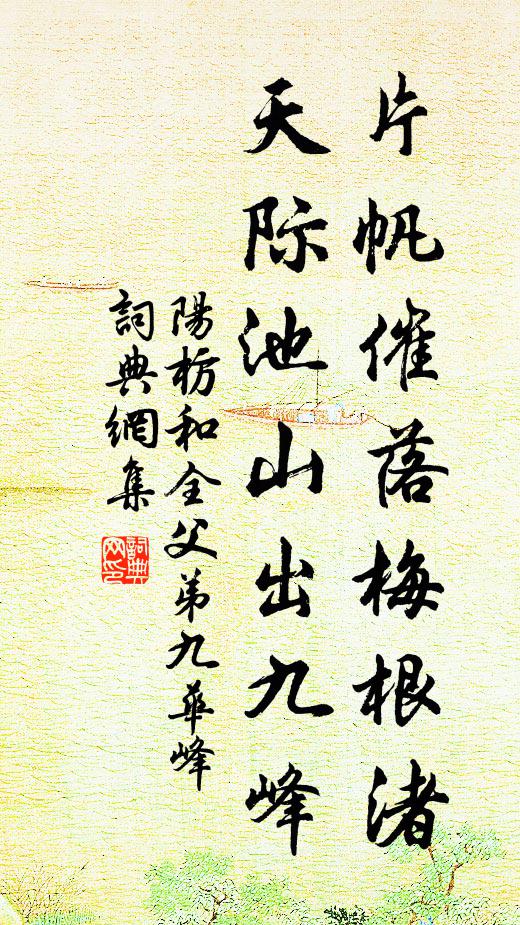 片帆催落梅根渚
天际池山出九峰
陽枋和全父弟九華峰
詞典網集
詞典网印